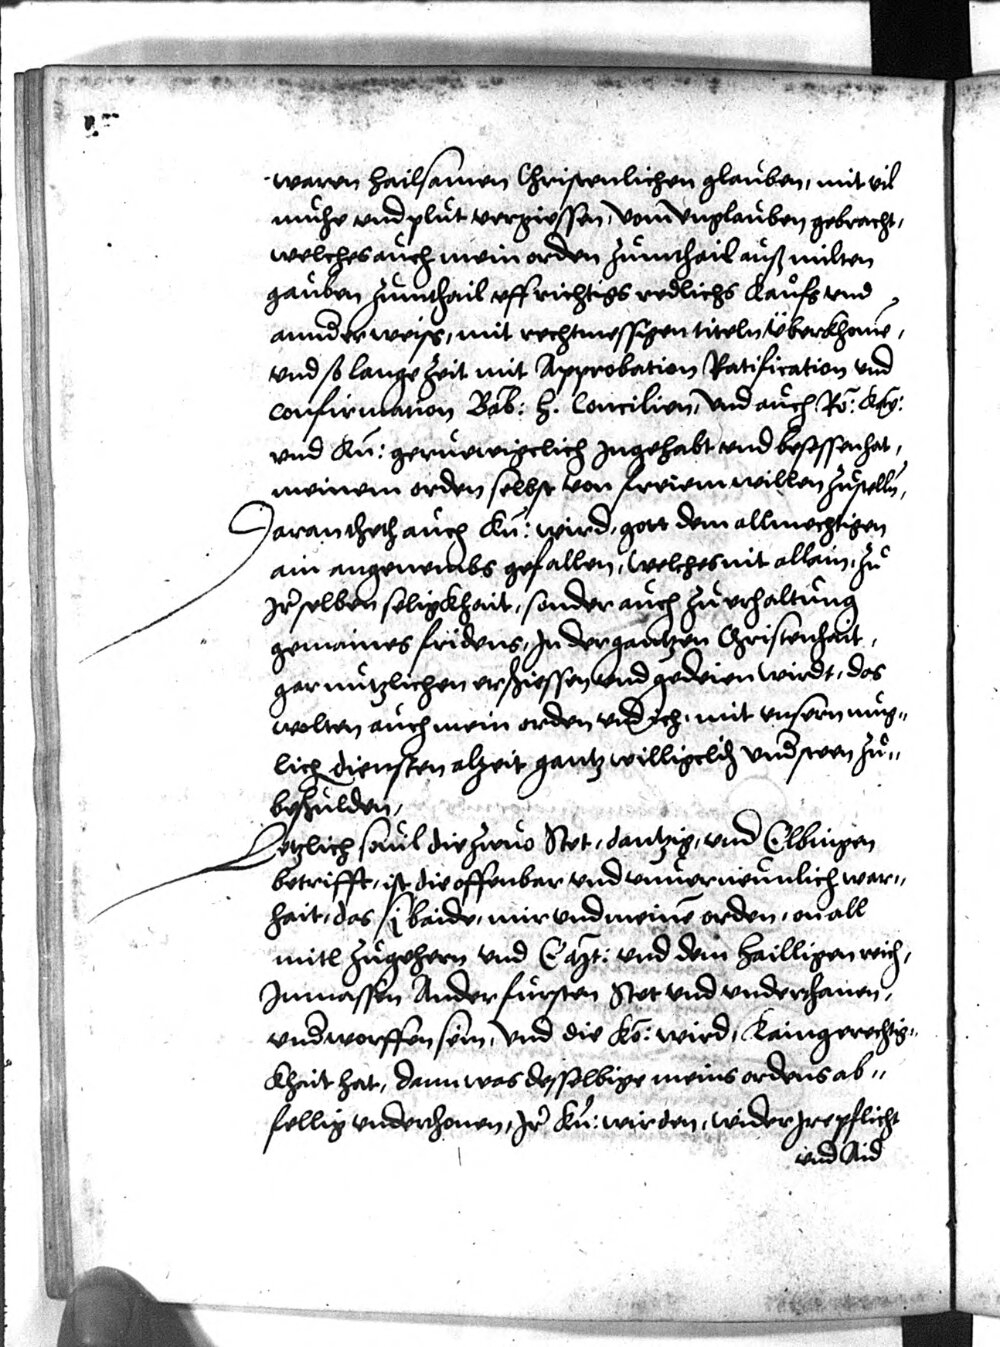 waren hailsamen Christenlichen glauben, mit vil
muhe vnd plut vergiessen, vom Vnglauben gebracht,
welches auch mein orden zumthail auß milten
gauben zumthail vff richtigs redlichs Kaufs vnd
annder weiss, mit rechtmessigen titeln überkhome,
vnd so lange Zeit mit Approbation Ratification vnd
Confirmation Bab: h. Concilien, Vnd auch Rö: Kay:
vnd Kü: geruewigclich Ingehabt vnd besessen hat,
meinem orden selbst von freiem willen Zustelln,
Daran theth auch Kü: wird, gott dem allmechtigen
ain angenembs gefallen, welches nit allain, zu
Ir selben seligkhait, sonder auch zu erhaltung
gemaines fridens, In der gantzen Christenhait,
gar nutzlichen erschiessen vnd gedeien wirdt, das
wolten auch mein orden vnd Ich, mit vnsern mug=
lich diensten alzeit gantz willigclich vnd sten zu=
beschulden,
Letzlich souil die zwuo Stet, dantzig, vnd Elbingen
betrifft, ist die offenbar vnd vnuerneunlich war=
hait, das sy baide, mir vnd meine orden, on all
mitl zugehorn vnd E. Mt: vnd dem hailligen reich,
Inmassen Ander fursten Stet vnd vnderthanen,
vnderworffen sein, Vnd die Kö: wird, Kain gerechtig=
khait hat, dann was desselbige meins ordens ab=
fellig vnderthonen, Ir Kü: wirden, wider Ire pflicht
vnd Aid